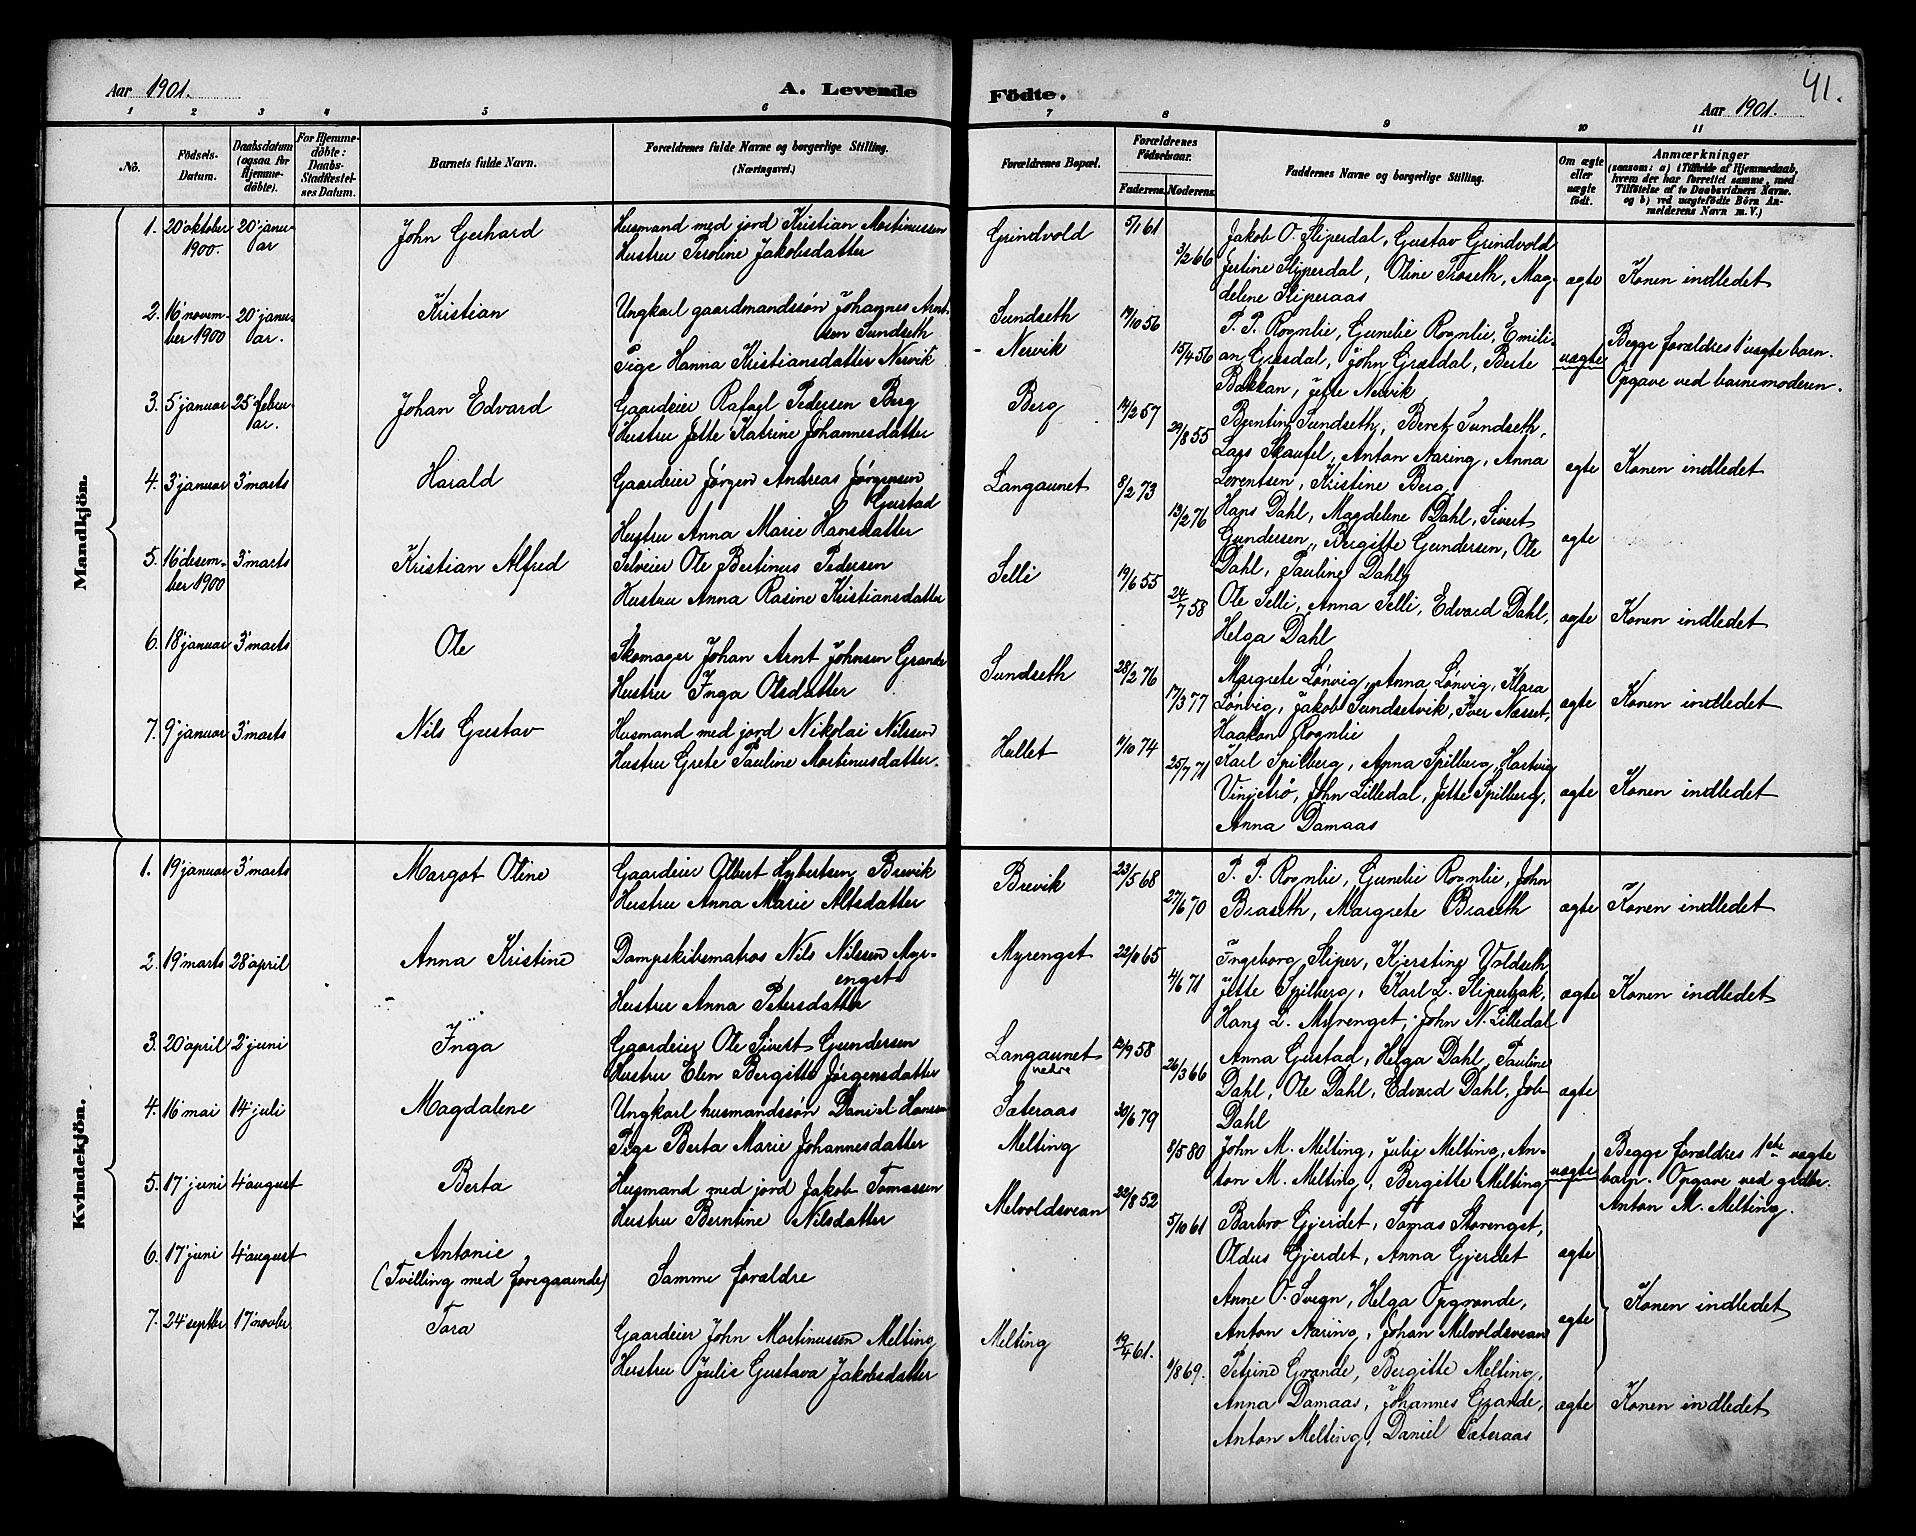 Aar 1901.
A. Levende
Fødte.
41.
Aar 1901.
1 2 3 4 5 6 7 8 9 10 11
No.
Födsels-Datum.
Daabsdatum (ogsaa for Hjemme-döbte).
For Hjemme-döbte: Daabs-Stadfæstel-ses Datum.
Barnets fulde Navn.
Forældrenes fulde Navne og borgerlige Stilling.
(Næringsvei.)
Forældrenes Bopæl.
Forældrenes Födselsaar.
Faderens. Moderens.
Faddernes Navne og borgerlige Stilling.
Om ægte eller uægte født.
Anmærkninger
(saasom: a) i Tilfælde af Hjemmedaab, hvem der har forrettet samme, med Tilføielse af to Daabsvidners Navne. og b) ved uægtefödte Börn An-melderens Navn m. V.)
Mandkjön.
1. 20' oktober 1900. 20' janu-ar
John Gerhard
Husmand med jord Kristian Mortinussen
Hustru Peroline Jakobsdatter
Grindvold
5/1 61
3/2 66
Jakob O. Sliperdal, Gustav Grindvold
Jertine Sliperdal, Oline Troseth, Mag-
delene Sliperaas
ægte
Konen indledet
2. 16' novem-ber 1900 20' janu-ar.
Kristian
Ungkarl gaardmandssøn Johannes Arnt-
sen Sundseth
Pige Hanna Kristiansdatter Nervik
Sundseth
- Nervik
19/10 56
15/4 56
P. P. Rognlie, Gunelie Rognlie, Emili-
an Græsdal, John Græsdal, Berte
Bakkan, Jette Nervik
uægte
Begge forældres 1' uægte barn.
Opgave ved barnemoderen.
3. 5' januar 25' febru-ar.
Johan Edvard
Gaardeier Rafael Pedersen Berg
Hustru Jette Katrine Johannesdatter
Berg
14/2 57
29/8 55
Berntine Sundseth, Beret Sundseth,
Lars Skaufel, Anton Aaring, Anna
Lorentsen, Kristine Berg
ægte
Konen indledet
4. 3' januar 3' marts
Harald
Gaardeier Jørgen Andreas Jørgensen
Gustad
Hustru Anna Marie Hansdatter
Langaunet
8/2 73
13/2 76
Hans Dahl, Magdelene Dahl, Sivert
Gundersen, Bergitte Gundersen, Ole
Dahl, Pauline Dahl
ægte
5. 16' desem-ber 1900 3' marts
Kristian Alfred
Selveier Ole Bertinus Pedersen
Hustru Anna Rasine Kristiansdatter
Selli
19/6 55
24/7 58
Ole Selli, Anna Selli, Edvard Dahl,
Helga Dahl
ægte
Konen indledet
6. 18' januar 3' marts
Ole
Skomager Johan Arnt Johnsen Grande
Hustru Inga Olsdatter
Sundseth
28/2 76
17/3 77
Margrete Lønvig, Anna Lønvig, Klara
Lønvig, Jakob Sundsetvik, Iver Næsset,
Haakon Rognlie
ægte
Konen indledet
7. 9' januar 3' marts
Nils Gustav
Husmand med jord Nikolai Nilssen
Hustru Grete Pauline Mortinusdatter.
Hullet
11/10 74
25/7 71
Karl Spilberg, Anna Spilberg, Hartvig
Vinjetrø, John Lilledal, Jette Spilberg,
Anna Damaas
ægte
Konen indledet
Kvindekjön.
1. 19' januar 3' marts
Margot Oline
Gaardeier Albert Hybertsen Brevik
Hustru Anna Marie Altsdatter
Brevik
23/5 68
27/6 70
P. P. Rognlie, Gunelie Rognlie, John
Braseth, Margrete Braseth
ægte
Konen indledet
2. 19' marts 28' april
Anna Kristine
Dampskibsmatros Nils Nilssen Myr-
enget
Hustru Anna Petersdatter
Myrenget
22/10 65
4/6 71
Ingeborg Sliper, Kjerstine Voldseth
Jette Spilberg, Karl L. Sliperbak,
Hans L. Myrenget, John N. Lilledal
ægte
Konen indledet
3. 20' april 2' juni
Inga
Gaardeier Ole Sivert Gundersen
Hustru Elen Bergitte Jørgensdatter
Langaunet
nedre
12/9 58
26/3 66
Anna Gustad, Helga Dahl, Pauline
Dahl, Ole Dahl, Edvard Dahl, Job
Dahl
ægte
4. 16' mai 14' juli
Magdalene
Ungkarl husmandssøn Daniel Hansen
Pige Berta Marie Johannesdatter
Sæteraas
Melting
30/6 79
8/5 80
John M. Melting, Julie Melting, An-
ton M. Melting, Bergitte Melting
uægte
Begge forældres 1ste uægte
barn. Opgave ved grdbr.
Anton M. Melting.
5. 17' juni 4' august
Berta
Husmand med jord Jakob Tomassen
Hustru Berntine Nilsdatter
Melvoldsvean
22/8 52
5/10 61
Barbro Gjerdet, Tomas Storenget,
Oldus Gjerdet, Anna Gjerdet
ægte
6. 17' juni 4' august
Antonie
(Tvilling med foregaaende)
Samme forældre
Anne O. Svegn, Helga Opgrande,
Anton Aaring, Johan Melvoldsvean
ægte
Konen indledet
7. 24' septbr 17' novbr
Tora
Gaardeier John Mortinussen Melting
Hustru Julie Gustava Jakobsdatter
Melting
19/4 61.
11/8 69.
Petrine Grande, Bergitte Melting,
Anna Damaas, Johannes Grande,
Anton Melting, Daniel Sæteraas
ægte
Konen indledet